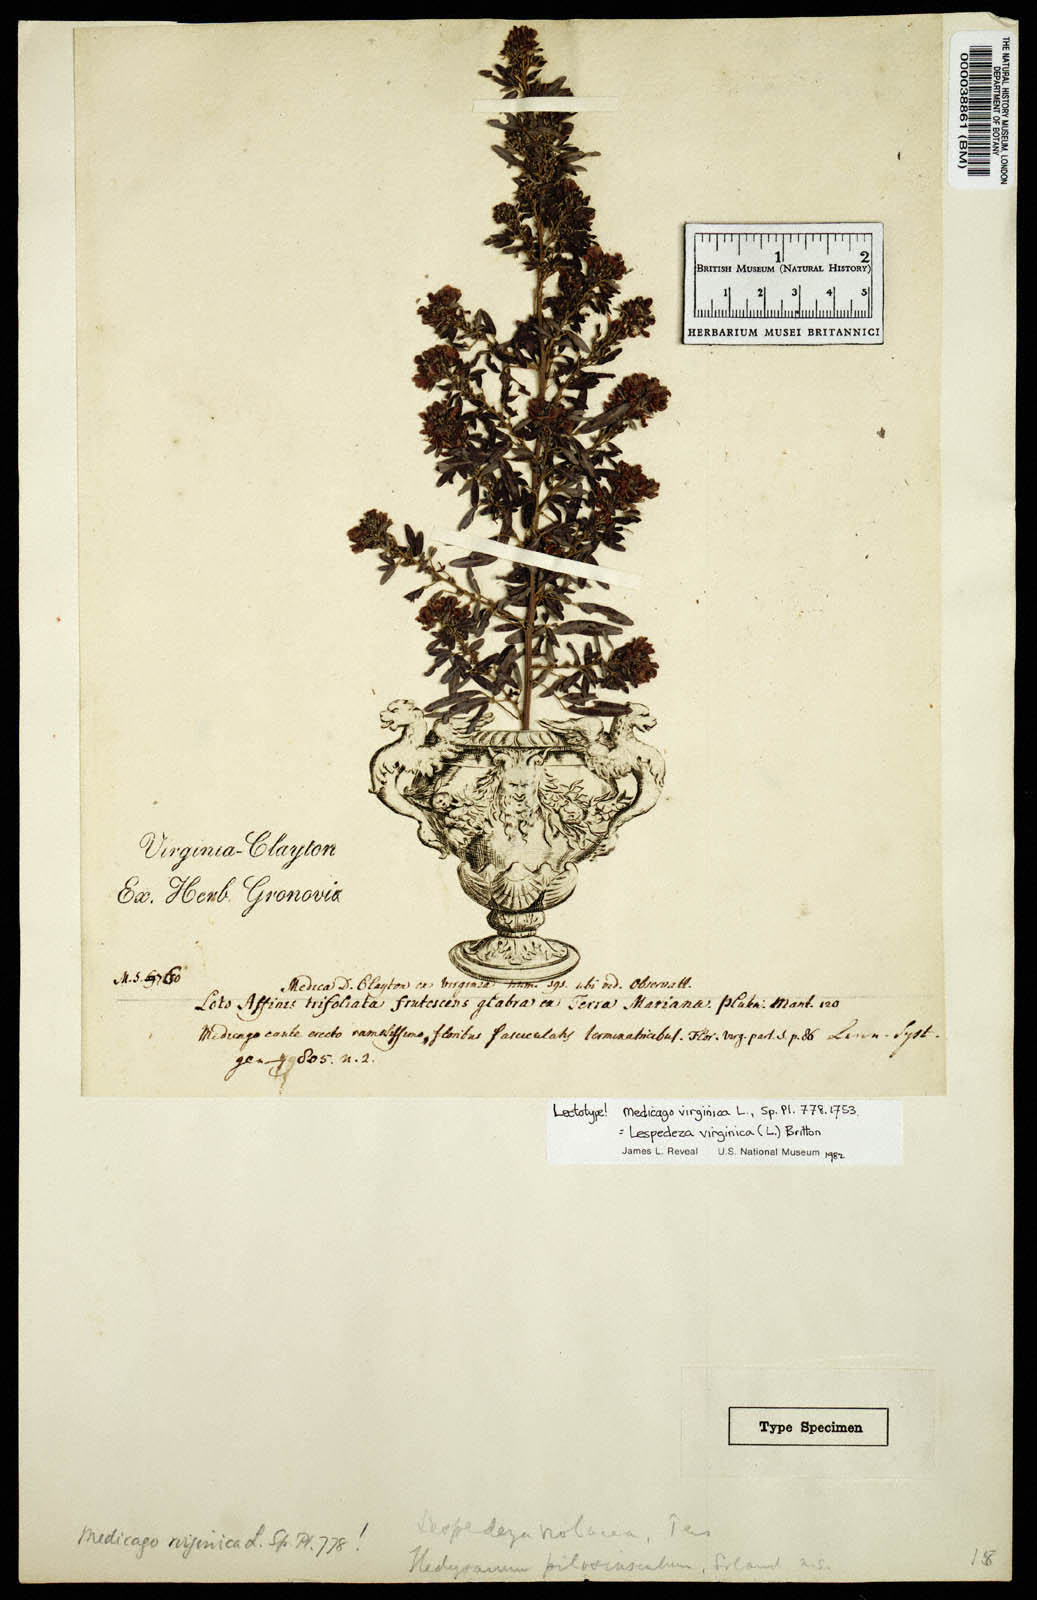 THE NATURAL HISTORY MUSEUM, LONDON
DEPARTMENT OF BOTANY
000038861 (BM)
1 2
BRITISH MUSEUM (NATURAL HISTORY)
1 2 3 4 5
HERBARIUM MUSEI BRITANNICI
Virginia-Clayton
Ex. Herb Gronovii
Medica D. Clayton ex Virginia num. 595. ubi vid. Observatt.
Loto Affinis trifoliata frutescens glabra ex Terra Mariana. Plukn. Mant. 120
Medicago caule erecto ramosissimo, floribus fasciculatis terminatricibus. Flor. Virg. part. 1. p. 86 Linn. Syst.
gen. 805. n. 2.
Lectotype! Medicago virginica L., Sp. Pl. 778. 1753.
= Lespedeza virginica (L.) Britton
James L. Reveal U.S. National Museum 1982
Type Specimen
Medicago virginica L. Sp. Pl. 778!
Lespedeza violacea, Pers
Hedysarum pilosiusculum, Soland
18